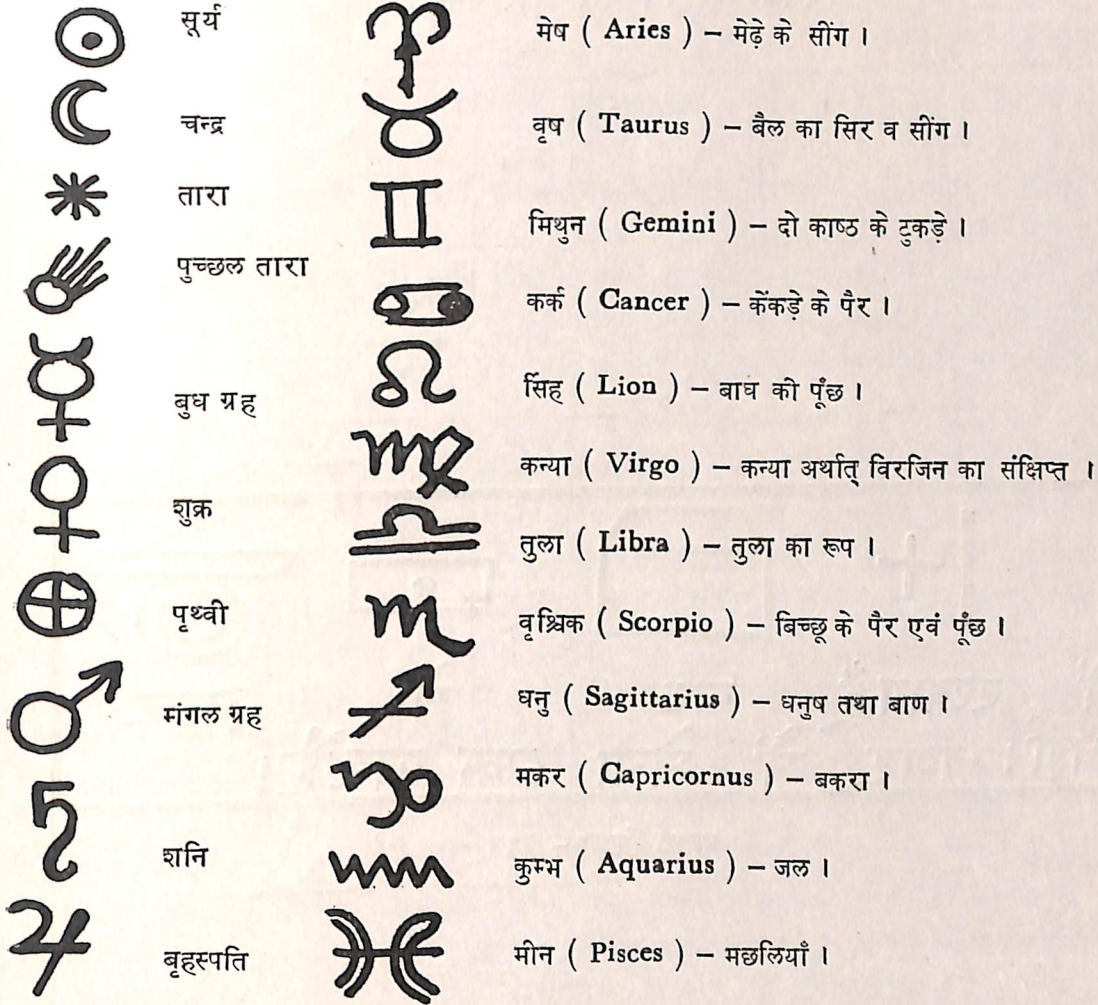 सूर्य
चन्द्र
तारा
पुच्छल तारा
बुध ग्रह
शुक्र
पृथ्वी
मंगल ग्रह
शनि
बृहस्पति
मेष ( Aries ) – मेढ़े के सींग ।
वृष ( Taurus ) – बैल का सिर व सींग ।
मिथुन ( Gemini ) – दो काष्ठ के टुकड़े ।
कर्क ( Cancer ) – केंकड़े के पैर ।
सिंह ( Lion ) – बाघ की पूँछ ।
कन्या ( Virgo ) – कन्या अर्थात् विरजिन का संक्षिप्त ।
तुला ( Libra ) – तुला का रूप ।
वृश्चिक ( Scorpio ) – बिच्छू के पैर एवं पूँछ ।
धनु ( Sagittarius ) – धनुष तथा बाण ।
मकर ( Capricornus ) – बकरा ।
कुम्भ ( Aquarius ) – जल ।
मीन ( Pisces ) – मछलियाँ ।